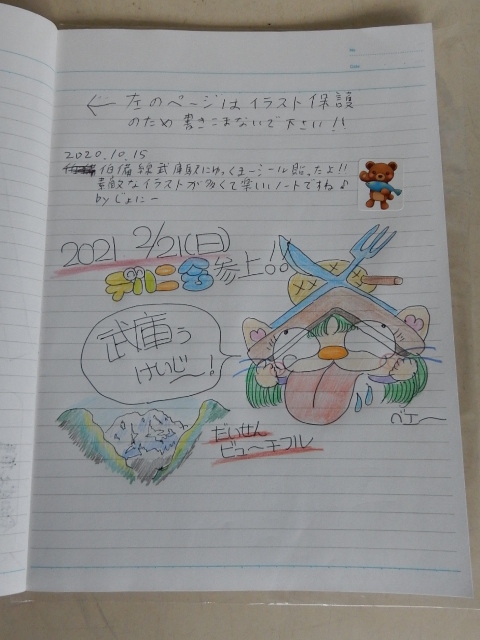 ← 左のページはイラスト保護
のため書きこまないで下さい!!
2020.10.15
伯備線武庫駅にゆっくまーシール貼ったよ!!
素敵なイラストが多くて楽しいノートですね♪
byじょにー
2021 2/21(日)
参上!!
武庫ぅ
けいじ〜!
だいせん
ビューチフル
ベエー